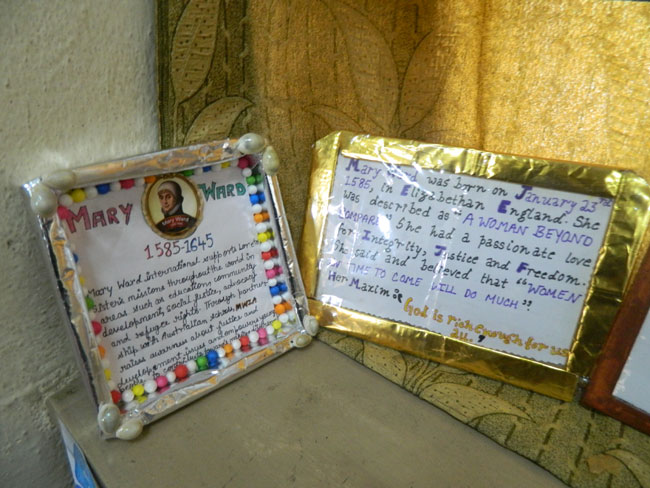 MARY WARD
Mary Ward
1585-1645
Mary Ward International supports Loreto
Sister's missions throughout the world in
areas such as education, community
development, social justice, advocacy
and refugee rights. Through partner
ship with Australian schools, MWIA
raises awareness about justice and
development issues and empowers young
people to
Mary Ward was born on January 23rd
1585, in Elizabethan England. She
was described as "A WOMAN BEYOND
COMPARE" She had a passionate love
for Integrity, Justice and Freedom.
She said and believed that "WOMEN
IN TIME TO COME WILL DO MUCH"
Her Maxim:
God is rich enough for us
all."